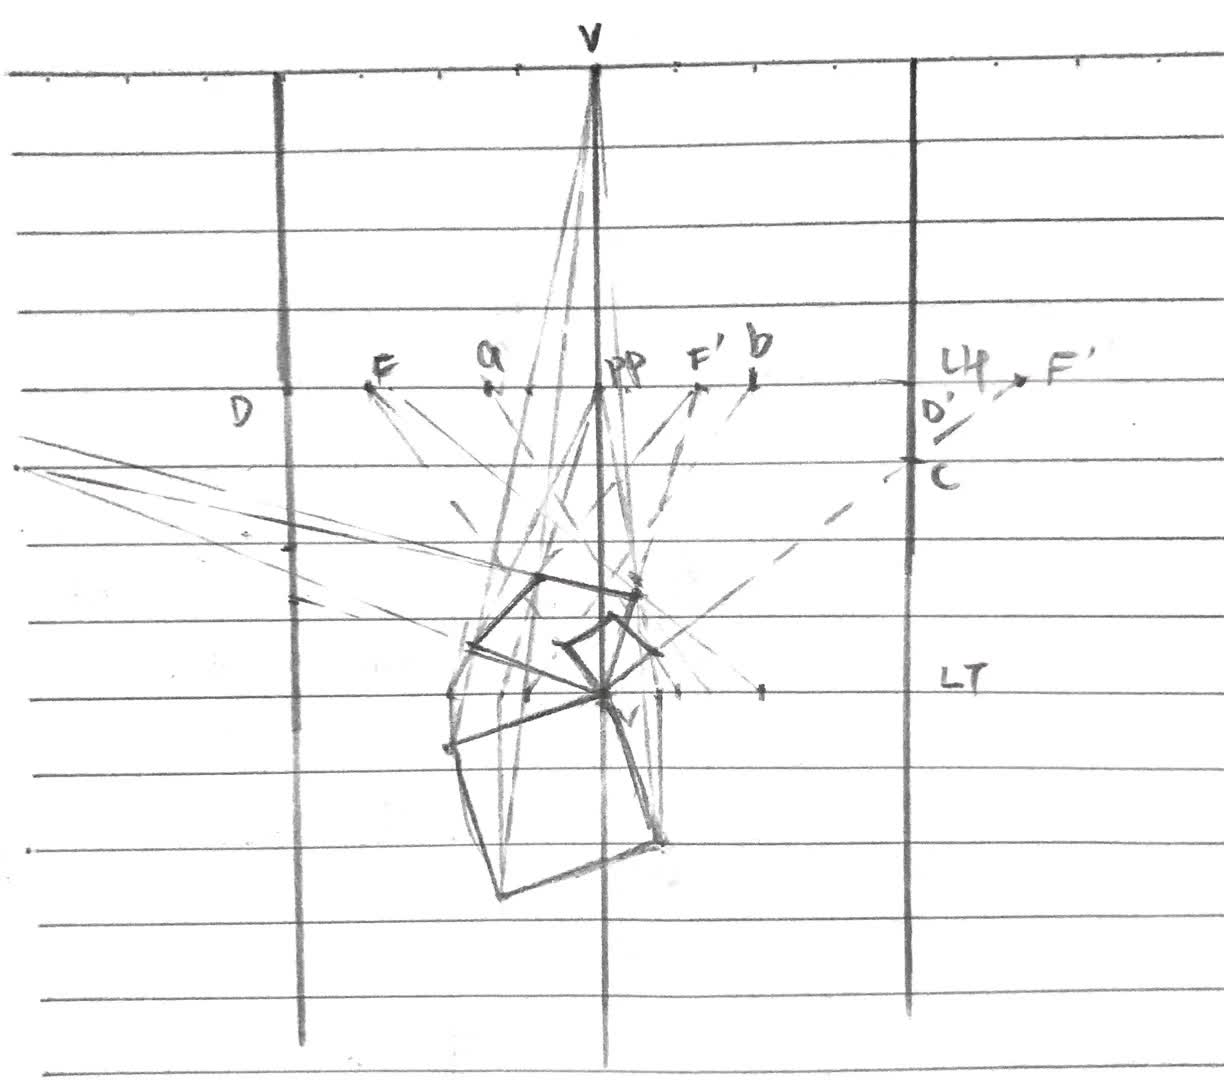 V
F a PP F' b LH F'
D D'
C
LT
V